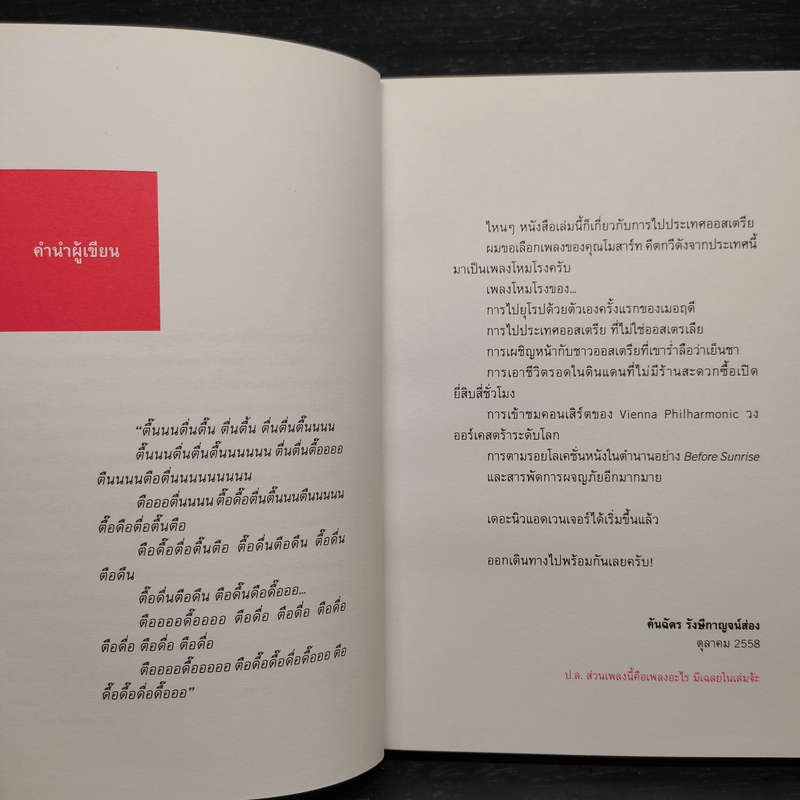 คำนำผู้เขียน
“ตื๊นนนตื่นตื๊น ตื่นตื้น ตื่นตื่นตื๊นนนน
ตื๊นนนตื่นตื่นตื๊นนนนนน ตื่นตื่นตื๊ออออ
ตืนนนนตือตื่นนนนนนนนน
ตือออตื่นนนน ตื๊อดื๊อตื่นตื๊นนนตืนนนนน
ตื๊อดือตื่อตื๊นตือ
ตือดื๊อตื่อตื๊นตือ ตื๊อดื่นตือดืน ตื๊อดื่น
ตือดืน
ตื๊อดื่นตือดืน ตือดื๊นดือดื๊อออ...
ตือออออดื๊ออออ ตือดื่อ ตือดื่อ ตือดื่อ
ตือดื่อ ตือดื่อ ตือดื่อ
ตืออออดื๊อออออ ตือดื๊อดื๊อดื่อดื๊อออ ตือ
ดื๊อดื๊อดื่อดื๊อออ”
ไหนๆ หนังสือเล่มนี้ก็เกี่ยวกับการไปประเทศออสเตรีย
ผมขอเลือกเพลงของคุณโมสาร์ท คีตกวีดังจากประเทศนี้
มาเป็นเพลงโหมโรงครับ
เพลงโหมโรงของ...
การไปยุโรปด้วยตัวเองครั้งแรกของเมอฤดี
การไปประเทศออสเตรีย ที่ไม่ใช่ออสเตรเลีย
การเผชิญหน้ากับชาวออสเตรียที่เขาร่ำลือว่าเย็นชา
การเอาชีวิตรอดในดินแดนที่ไม่มีร้านสะดวกซื้อเปิด
ยี่สิบสี่ชั่วโมง
การเข้าชมคอนเสิร์ตของ Vienna Philharmonic วง
ออร์เคสตร้าระดับโลก
การตามรอยโลเคชั่นหนังในตำนานอย่าง Before Sunrise
และสารพัดการผจญภัยอีกมากมาย
เดอะนิวแอดเวนเจอร์ได้เริ่มขึ้นแล้ว
ออกเดินทางไปพร้อมกันเลยครับ!
คันฉัตร รังษีกาญจน์ส่อง
ตุลาคม 2558
ป.ล. ส่วนเพลงนี้คือเพลงอะไร มีเฉลยในเล่มจ้ะ